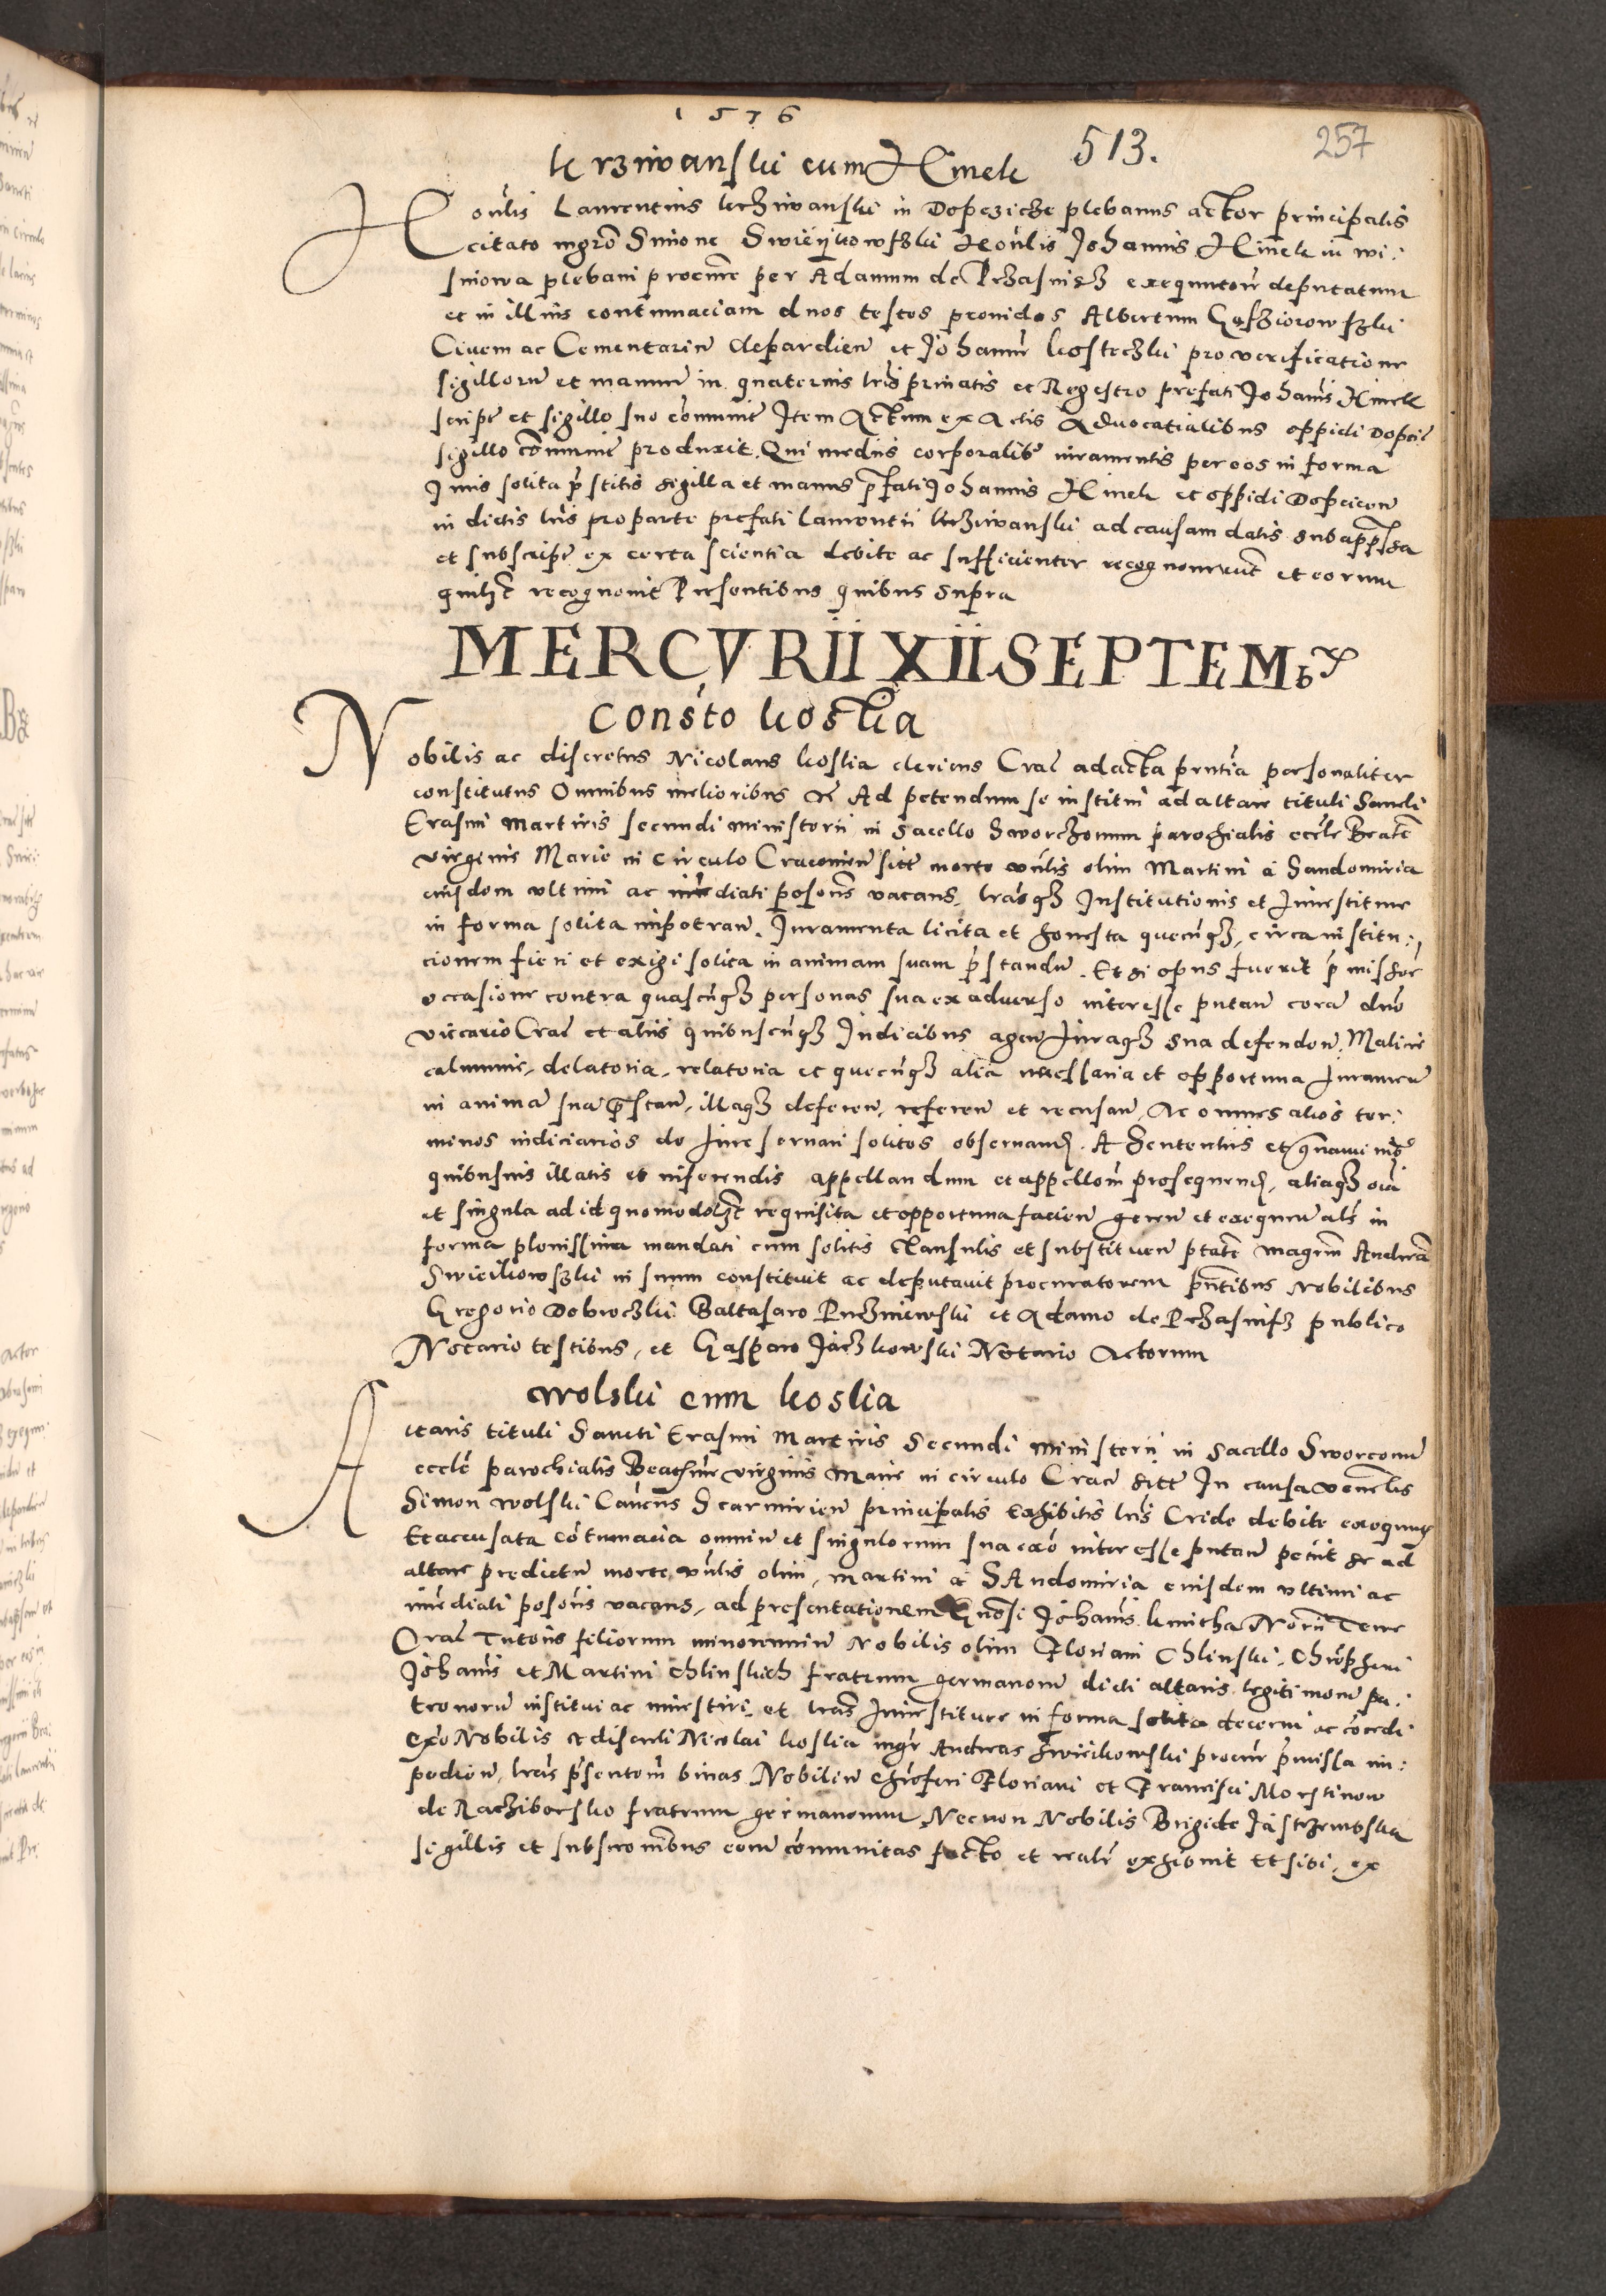 1576
513.
257
krziwanski cum Hinek
Honlis Laurentius krziwanski in Dopczicze plebanus actor principalis
citato mgro Simone Swieykowski Honlis Johannis Hinek in wi:
sniowa plebani procure per Adamum de Przasnisz exequutore deputatum
et in illius contumaciam duos testes prouidos Albertum Gasziorowski
Ciuem ac Cementariu et Johanne kosteczki pro verificatione
sigilloru et manuu in quaternis lris priuatis et Regestro prefati Johanis Hinek
script et sigillo suo comunit Item Actum ex Actis Aduocatialibus oppidi Dopcic
sigillo comunit produxit. Qui mediis corporalibus iuramentis per eos in forma
Juris solita prstitis sigilla et manus prfati Johannis Hinek et oppidi Dopcicen
in dictis lris pro parte prefati Laurentii krziwanski ad causam datis subappssa
et subscript ex certa scientia debite ac sufficienter recognouerunt et eorum
quilzt recognouit Presentibus quibus supra
MERCVRII XII SEPTEMb
Consto koska
Nobilis ac discretus Nicolaus koska clericus Crac ad acta prntia personaliter
constitutus Omnibus melioribus et Ad petendum se institui ad altare tituli Sancti
Erasmi Martiris secundi ministerii in sacello Sworczonum parochialis eccle Beate
virginis Marie in circulo Cracouien sitt morte vnlis olim Martini a Sandomiria
eiusdem vltimi ac imediati posons vacans, lrasqz Institutionis et Inuestiture
in forma solita impetran. Juramenta licita et honesta quecuqz, circa institu:
cionem fieri et exigi solita in animam suam prstandu. Et si opus fuerit prmissor
occasione contra quascuqz personas sua ex aduerso interesse putan cora dno
viccario Crac et aliis quibuscuqz Judicibus agen Juraqz sua defenden, Malicie
calumnie, delatoria, relatoria et quecuqz alia necessaria et opportuna Juramen
in anima sua prstan, illaqz deferen, referen et recusan, Ac omnes alios ter:
minos iudiciarios de Jure seruari solitos obseruand. A Sententiis et grauaminibus
quibusuis illatis et inferendis appellandum et appellom prosequend, aliaqz oia
et singula ad id quomodolzt requisita et opportuna facien geren et exequen als in
forma plenissima mandati cum solitis Clausulis et substituen ptate magrm Andrea
Swieikowski in suum constituit ac deputauit procuratorem prntibus Nobilibus
Gregorio Dobroczki Baltasaro Puczniewski et Adamo de Przasnisz publico
Notario testibus, et Gasparo Jaczkowski Notario Actorum
wolski cum koska
Altaris tituli Sancti Erasmi Martiris Secundi Ministerii in Sacello Sworconu
eccle parochialis Beatissime virginis Marie in circulo Crac sitt In causa venelis
Simon wolski Cancus Scarmirien principalis Exhibitis lris Cride debite exequutis
Et accusata cotumacia omniu et singulorum sua exo interesse putan petiit se ad
altare predictu morte vnlis olim, Martini a SAndomiria eiusdem vltimi ac
imediati posons vacans, ad presentationem Gnosi Johanis kmitha Norii Terre
Crac Tutoris filiorum minorennium Nobilis olim Floriani Chlinski, Chrispheri
Johanis et Martini Chlinskich fratrum germanoru dicti altaris legitimoru pa:
tronoru institui ac inuestiri, et lras Inuestiture in forma solita decerni ac cocedi
Exo Nobilis et discreti Nicolai koska mgr Andreas Swieikowski procur prmissa im:
pedien, lras prsentom binas Nobiliu Chroferi Floriani et Francisci Morstinow
de Raczibersko fratrum germanorum Necnon Nobilis Brigide Jastrzembska
sigillis et subscronibus eoru comunitas facto et reali exhibuit Et sibi, ex